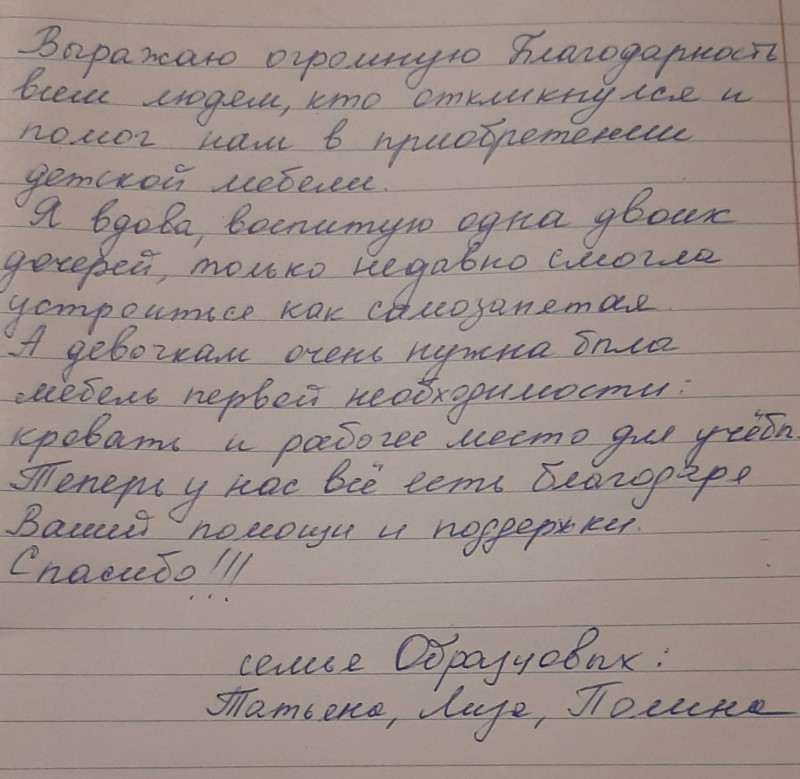 Выражаю огромную Благодарность
всем людям, кто откликнулся и
помог нам в приобретении
детской мебели.
Я вдова, воспитую одна двоих
дочерей, только недавно смогла
устроиться как самозанятая.
А девочкам очень нужна была
мебель первой необходимости:
кровать и рабочее место для учёбы.
Теперь у нас всё есть благодаря
Вашей помощи и поддержки.
Спасибо!!!
семья Образцовых:
Татьяна, Лиза, Полина